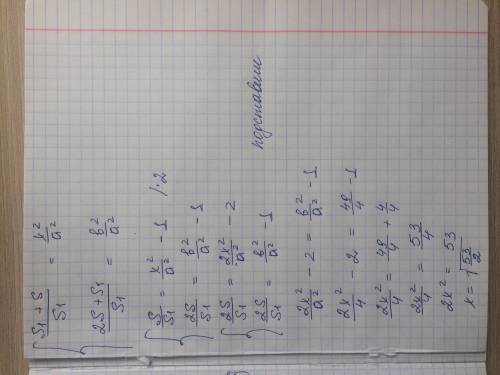 { (S1+S)/S1 = x²/a²
(2S+S1)/S1 = b²/a²
{ S/S1 = x²/a² - 1 /·2
2S/S1 = b²/a² - 1
{ 2S/S1 = 2x²/a² - 2
2S/S1 = b²/a² - 1
подставим
2x²/a² - 2 = b²/a² - 1
2x²/4 - 2 = 49/4 - 1
2x²/4 = 49/4 + 4/4
2x²/4 = 53/4
2x² = 53
x = √(53/2)